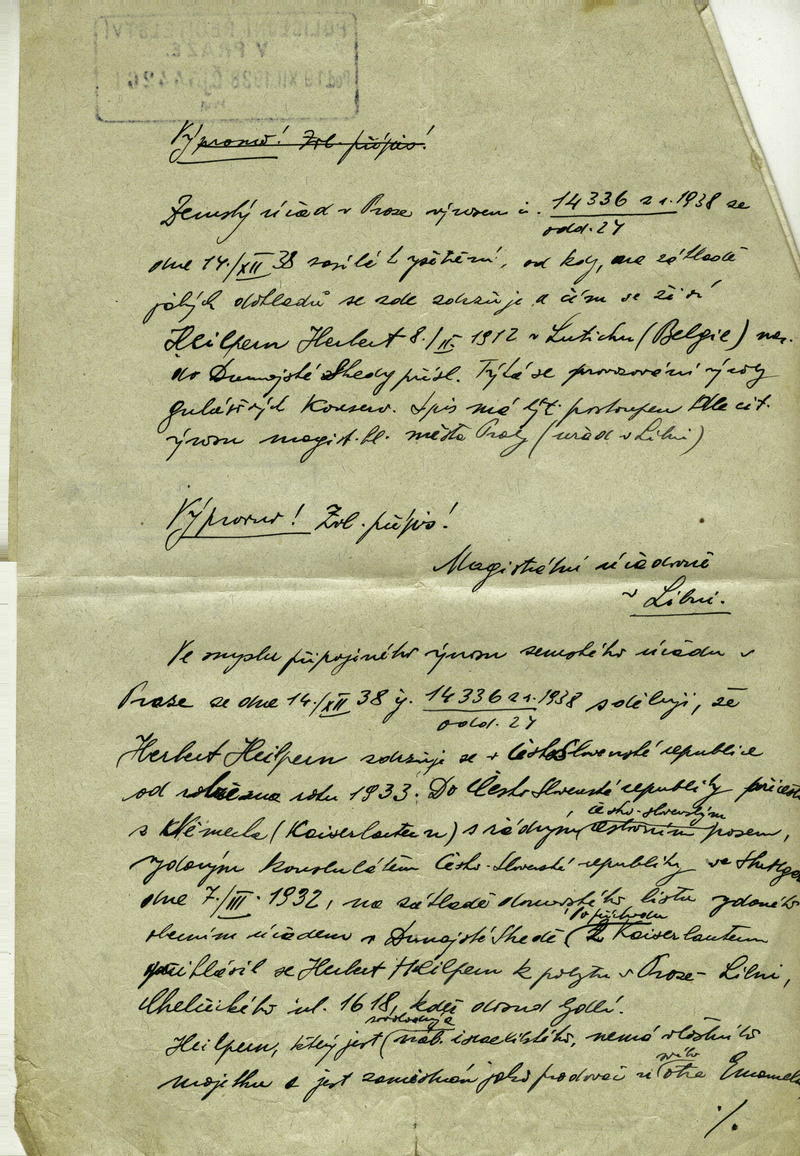 POLICEJNÍ ŘEDITELSTVÍ
V PRAZE.
XII. 1938
Výpravno! Zvl. přípis!
Zemský úřad v Praze výnosem č. 14336 z r. 1938 ze
odd. 27
dne 14./XII 38 zasílá k vyšetření, od kdy, na základě
jakých dokladů se zde zdržuje a čím se živí
Heilpern Herbert 8./II. 1912 v Lutichu (Belgie) nar.
do Dunajské Stredy přísl. Týká se provozování výroby
gulášových konserv. Spis má být postoupen dle cit.
výnosu magist. hl. města Prahy (úřad v Libni)
Výpravno! Zvl. přípis!
Magistrátní úřadovně
v Libni.
Ve smyslu připojeného výnosu zemského úřadu v
Praze ze dne 14./XII 38 č. 14336 z r. 1938 sděluji, že
odd. 27
Herbert Heilpern zdržuje se v Česko-Slovenské republice
od roku 1933. Do Česko-Slovenské republiky
česko-slovenským
z Německa (Kaiserlautern) s řádným cestovním pasem,
vydaným konsulátem Česko-Slovenské republiky ve
dne 7./III. 1932, na základě domovského listu vydaného
Po příchodu
obecním úřadem v Dunajské Stredě z Kaiserlautern
přihlásil se Herbert Heilpern k pobytu v Praze-Libni,
Chelčického ul. 1618, kdež dosud bydlí.
Heilpern, který jest náb. israelitského, nemá vlastního
svého
majetku a jest zaměstnán jako prodavač u otce Emanuela
./.